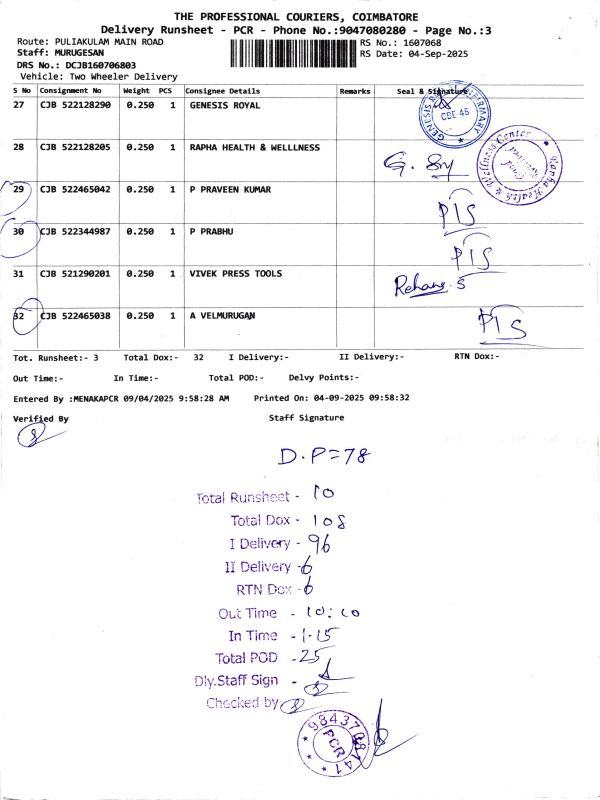 THE PROFESSIONAL COURIERS, COIMBATORE
Delivery Runsheet - PCR - Phone No.:9047080280 - Page No.:3
Route: PULIAKULAM MAIN ROAD
RS No.: 1607068
Staff: MURUGESAN
RS Date: 04-Sep-2025
DRS No.: DCJB160706803
Vehicle: Two Wheeler Delivery
S No Consignment No Weight PCS Consignee Details Remarks Seal & Signature
27 CJB 522128290 0.250 1 GENESIS ROYAL
GENESIS CBE-45
28 CJB 522128205 0.250 1 RAPHA HEALTH & WELLLNESS
Rapha Health & Wellness Center
29 CJB 522465042 0.250 1 P PRAVEEN KUMAR
PIS
30 CJB 522344987 0.250 1 P PRABHU
PIS
31 CJB 521290201 0.250 1 VIVEK PRESS TOOLS
32 CJB 522465038 0.250 1 A VELMURUGAN
PIS
Tot. Runsheet:- 3 Total Dox:- 32 I Delivery:- II Delivery:- RTN Dox:-
Out Time:- In Time:- Total POD:- Delvy Points:-
Entered By :MENAKAPCR 09/04/2025 9:58:28 AM Printed On: 04-09-2025 09:58:32
Verified By Staff Signature
D.P=78
Total Runsheet - 10
Total Dox - 108
I Delivery - 96
II Delivery - 6
RTN Dox - 6
Out Time - 10:10
In Time - 1-15
Total POD - 25
Dly.Staff Sign -
Checked by
PCR